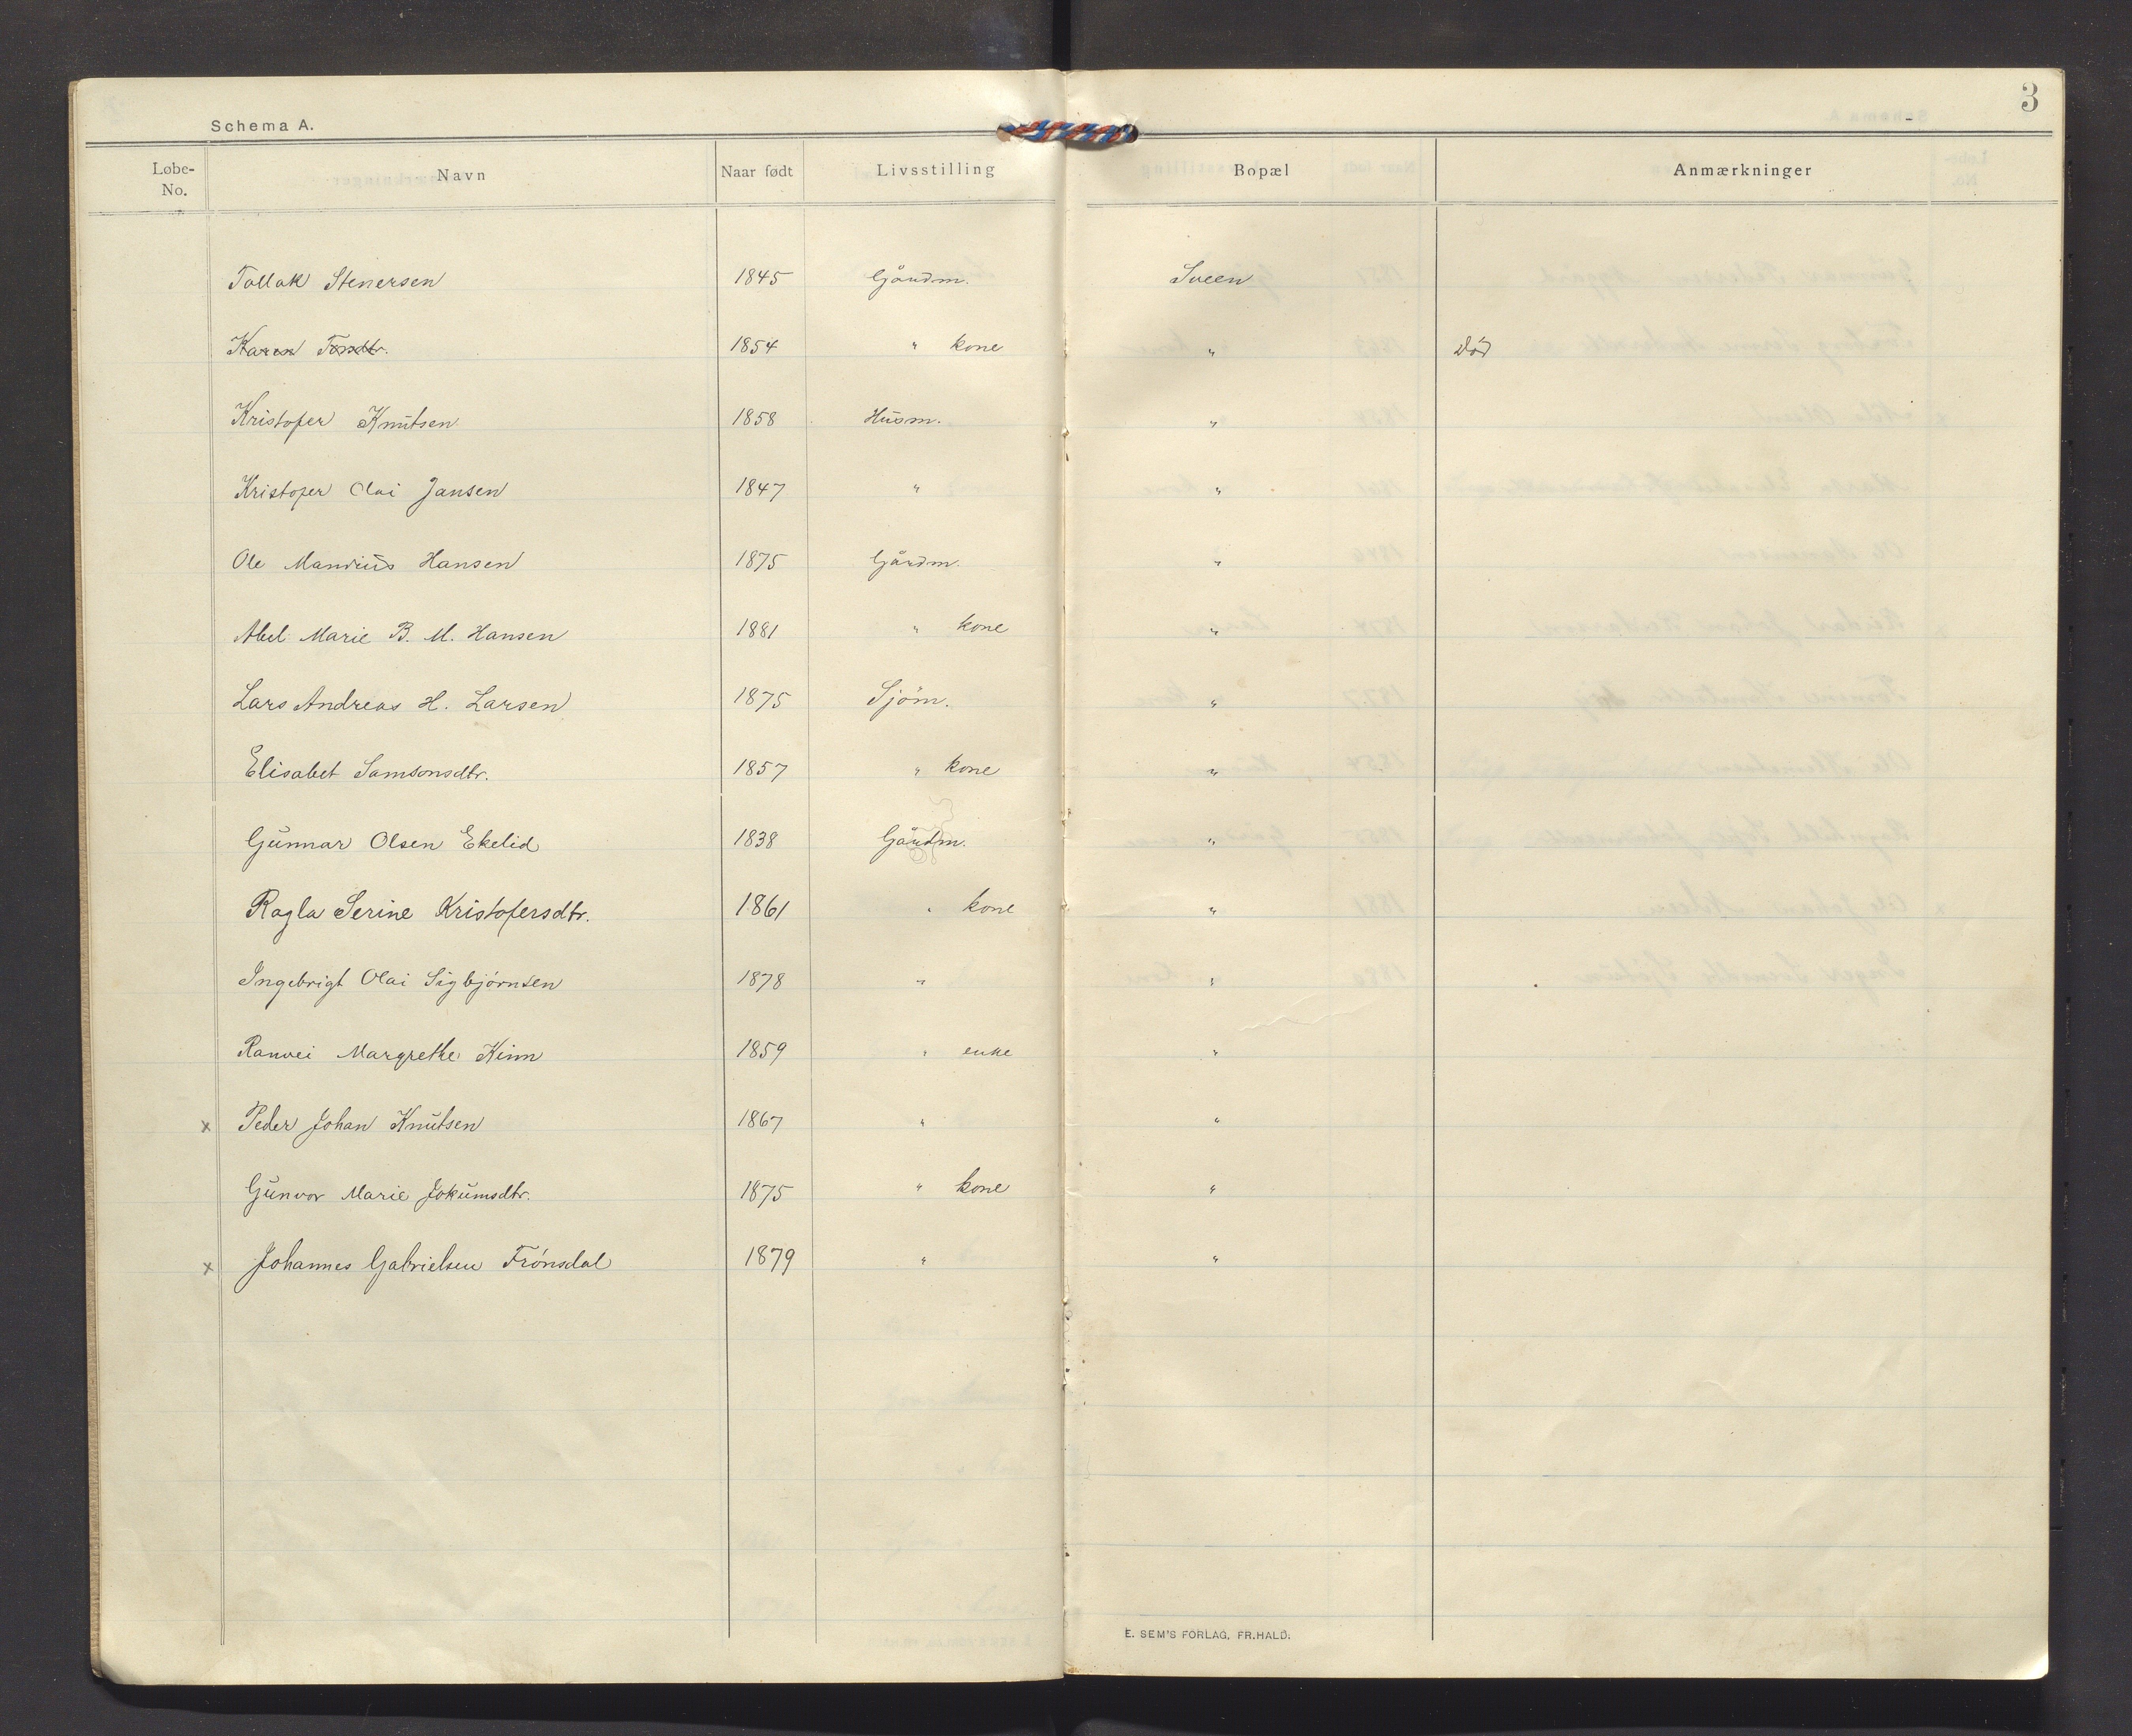 3
Schema A.
Løbe-No. Navn Naar født Livsstilling Bopæl Anmærkninger
Tallak Stenersen 1845 Gårdm. Sveen
Karen Tordtr. 1854 " kone " død
Kristofer Knutsen 1858 Husm. "
Kristofer Olai Jansen 1847 " "
Ole Mandius Hansen 1875 Gårdm. "
Abel Marie B. M. Hansen 1881 " kone "
Lars Andreas H. Larsen 1875 Sjöm. "
Elisabet Samsonsdtr. 1857 " kone "
Gunnar Olsen Ekelid 1838 Gårdm. "
Ragla Serine Kristofersdtr. 1861 " kone "
Ingebrigt Olai Sigbjørnsen 1878 " "
Ranvei Margrethe Kinn 1859 " enke "
x Peder Johan Knutsen 1867 " "
Gunvor Marie Jokumsdtr. 1875 " kone "
x Johannes Gabrielsen Frönsdal 1879 " "
E. SEM'S FORLAG, FR.HALD.